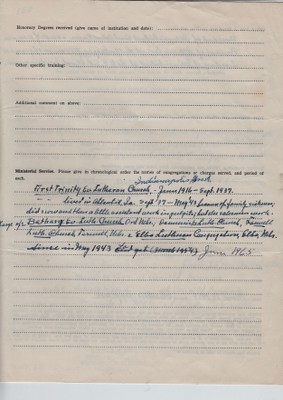 Honorary Degrees received (give name of institution and date):
Other specific training:
Additional comment on above:
Ministerial Service. Please give in chronological order the names of congregations or charges served, and period of each.
Indianapolis,
First Trinity Ev Lutheran Church - June 1916 - Sept. 1937.
lived in Atlanta, Ga. Sept '37 - May '43 because of family sickness,
did now and then a little assistant work in pulpits, but also extension work.
Bethany Ev. Luth Church Ord Nebr.
Luth Church Farwell, Nebr & Elba Lutheran Congregation, Elba, Nebr.
since in May 1943 June 1965